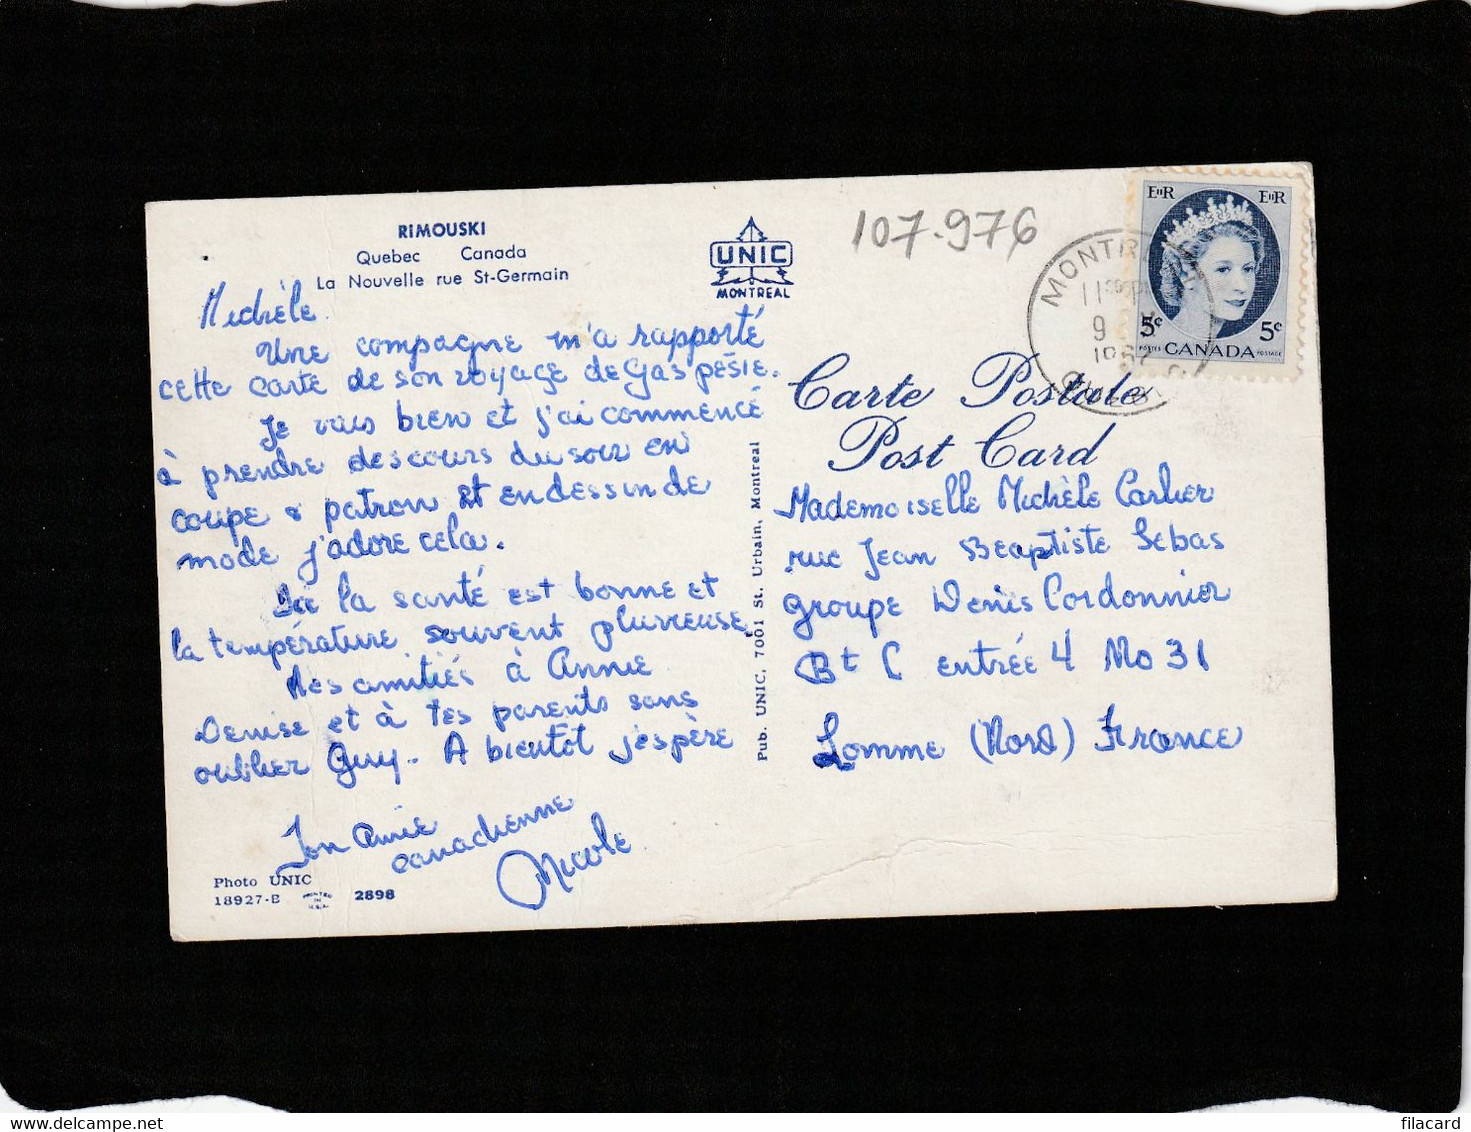 RIMOUSKI
Quebec Canada
La Nouvelle rue St-Germain
Michèle
Une compagne m'a rapporté
cette carte de son voyage de Gaspésie.
Je vais bien et j'ai commencé
à prendre des cours du soir en
coupe & patron et en dessin de
mode j'adore cela.
Ici la santé est bonne et
la température souvent pluvieuse
Mes amitiés à Annie
Denise et à tes parents sans
oublier Guy. A bientôt j'espère
Ton Amie
canadienne
Nicole
Photo UNIC
18927-B PRINTED IN U.S.A. 2898
UNIC
MONTREAL
Pub. UNIC, 7001 St. Urbain, Montreal
107.976
MONTR
11
9
EIIR EIIR
5c 5c
POSTES CANADA POSTAGE
Carte Postale
Post Card
Mademoiselle Michèle Carlier
rue Jean Beaptiste Lebas
groupe Denis Cordonnier
Bt C entrée 4 No 31
Lomme (Nord) France
filacard